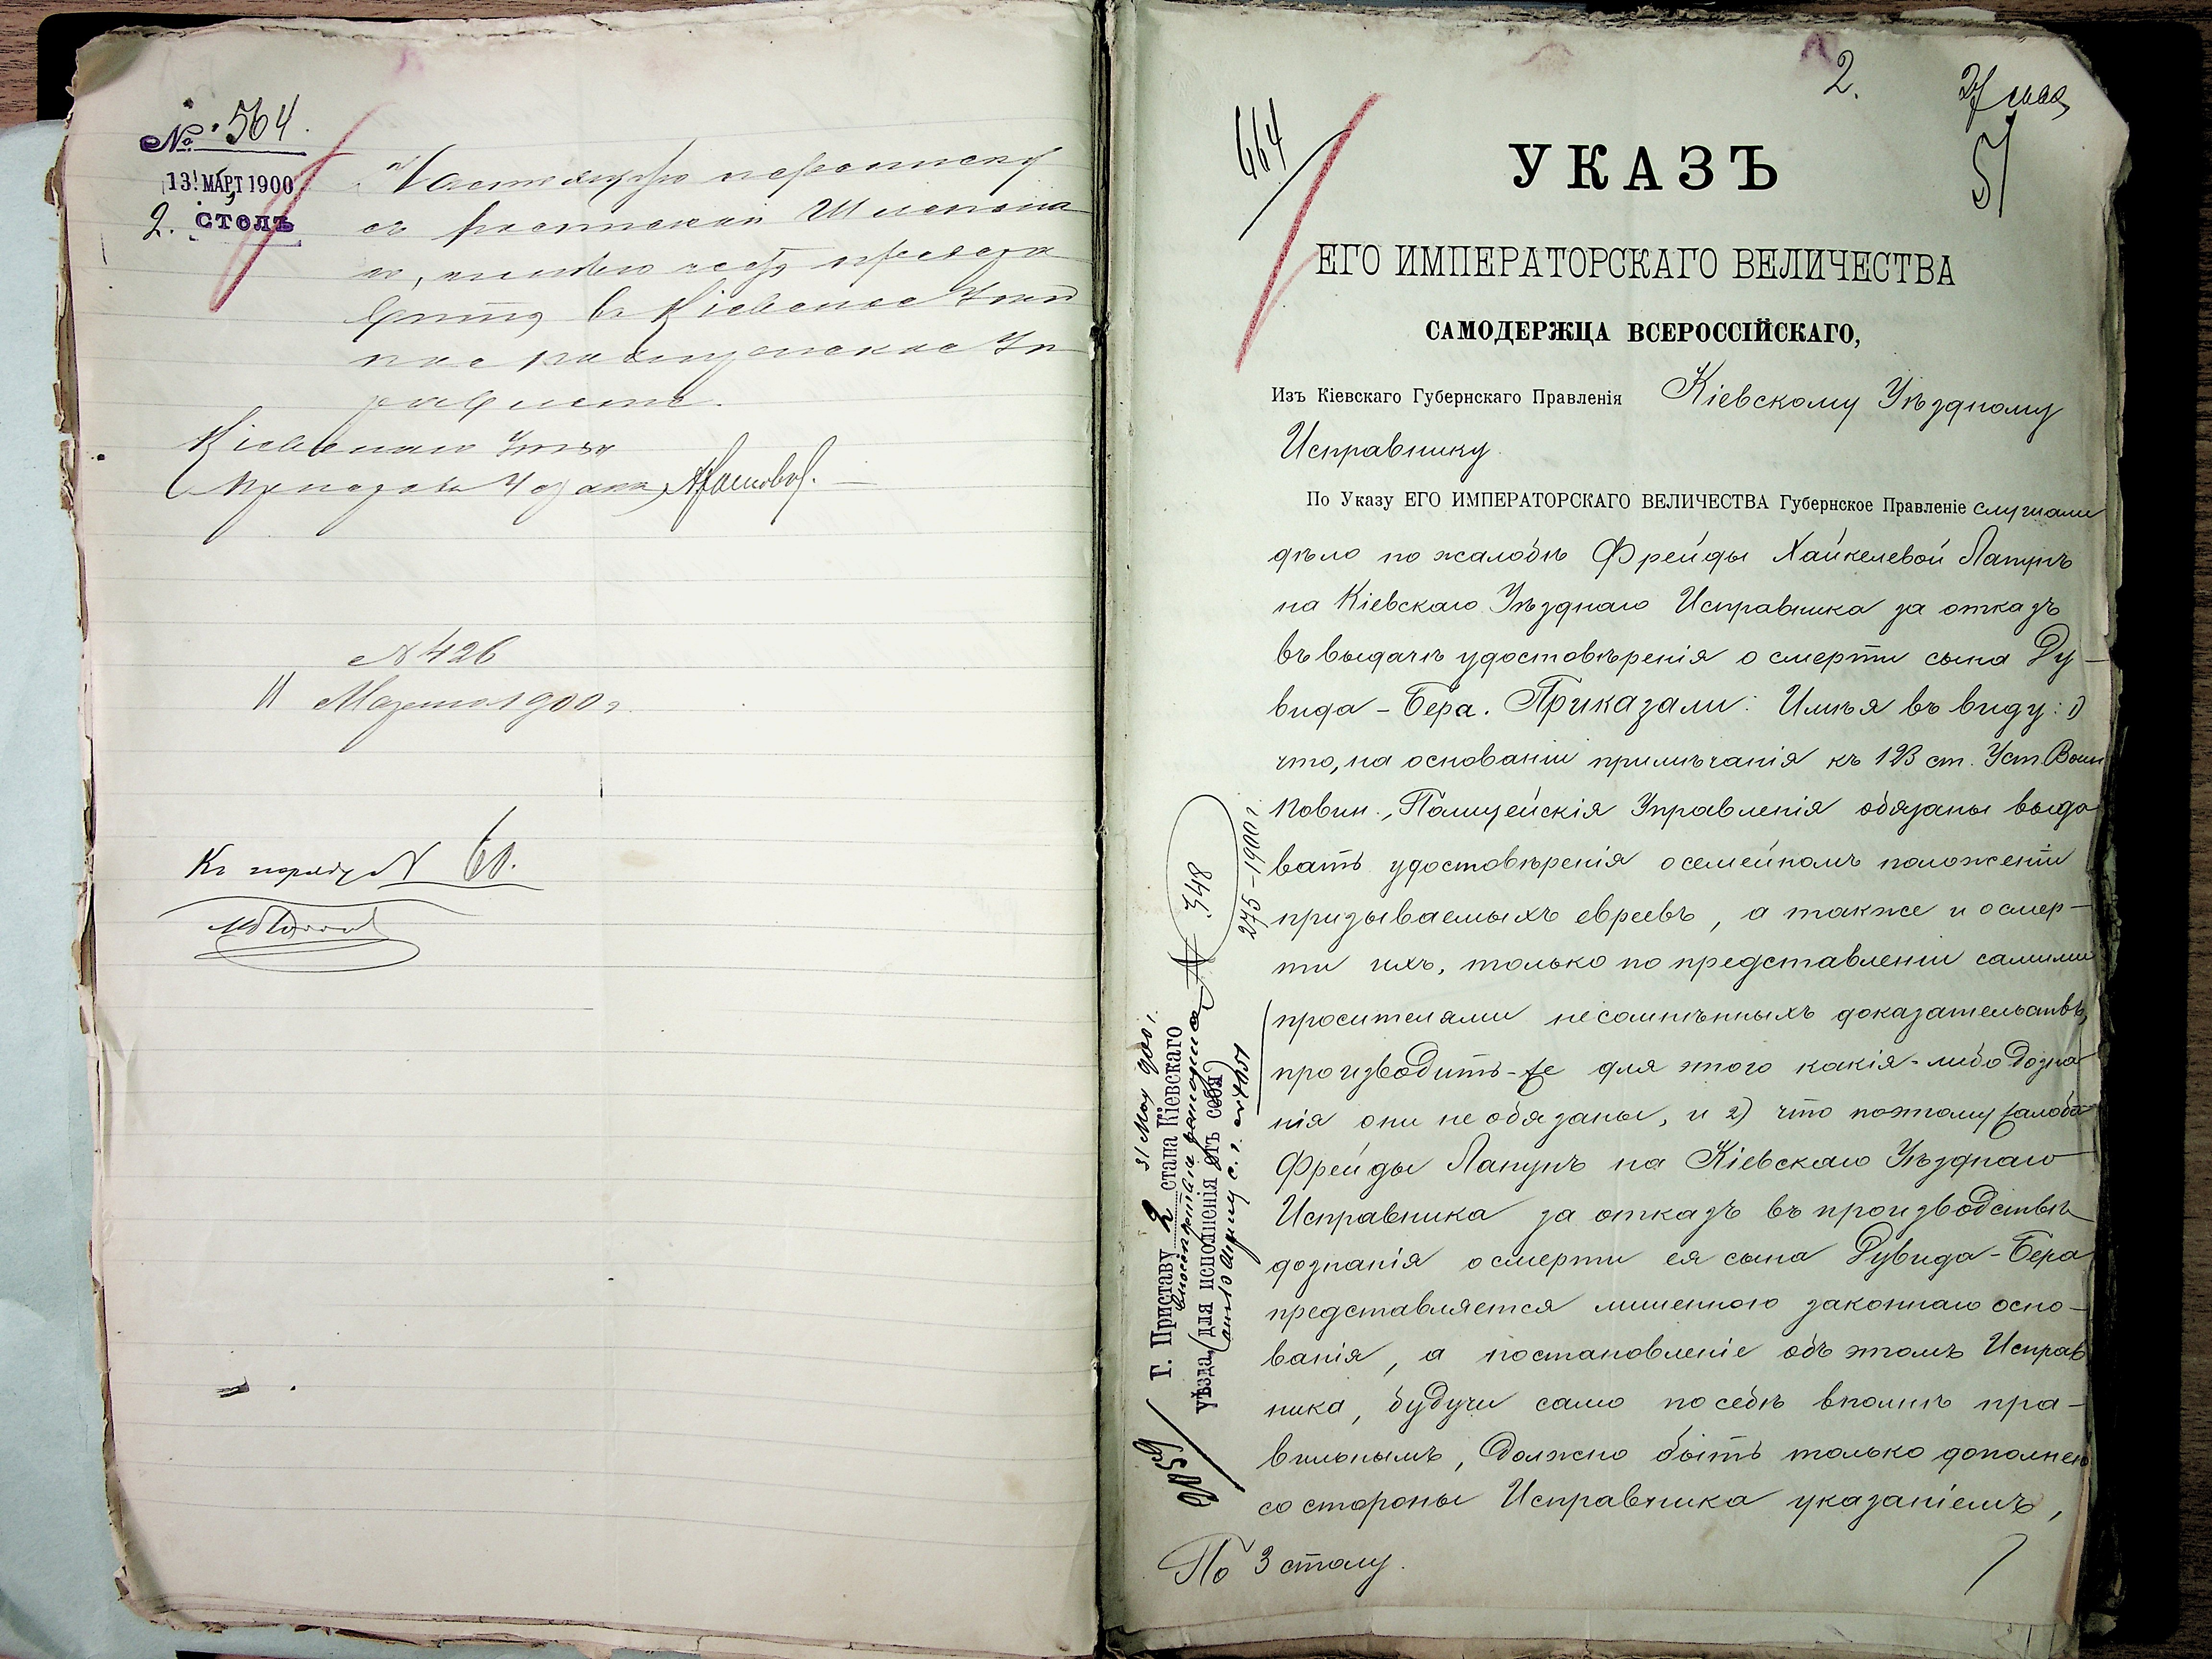 № 564.
13 МАРТ 1900
2. СТОЛЪ
Настоящую переписку
съ роспискою
представ
въ Кіевское
полицейское Уп
равленіе.
Кіевскаго
№ 426
11 Марта 1900 г.
Къ наряду № 60.
2.
27 мая
51
664
УКАЗЪ
ЕГО ИМПЕРАТОРСКАГО ВЕЛИЧЕСТВА
САМОДЕРЖЦА ВСЕРОССІЙСКАГО,
Изъ Кіевскаго Губернскаго Правленія Кіевскому Уѣздному
Исправнику.
По Указу ЕГО ИМПЕРАТОРСКАГО ВЕЛИЧЕСТВА Губернское Правленіе слушали
дѣло по жалобѣ Фрейды Хайкелевой Лапунъ
на Кіевскаго Уѣзднаго Исправника за отказъ
въ выдачѣ удостовѣренія о смерти сына Ру-
вида-Бера. Приказали: Имѣя въ виду: 1)
что, на основаніи примѣчанія къ 123 ст. Уст. Воин
Повин., Полицейскія Управленія обязаны выда
вать удостовѣренія о семейномъ положеніи
призываемыхъ евреевъ, а также и о смер-
ти ихъ, только по представленіи самими
просителями несомнѣнныхъ доказательствъ,
производить-же для этого какія-либо дозна
нія они не обязаны, и 2) что поэтому жалоба
Фрейды Лапунъ на Кіевскаго Уѣзднаго
Исправника за отказъ въ производствѣ
дознанія о смерти ея сына Рувида-Бера
представляется лишенною законнаго осно-
ванія, а постановленіе объ этомъ Исправ
ника, будучи само по себѣ вполнѣ пра-
вильнымъ, должно быть только дополнено
со стороны Исправника указаніемъ,
По 3 столу.
31 Мая 900 г.
Г. Приставу 2 стана Кіевскаго
уѣзда, для исполненія отъ себя
№ 348
275-1900 г